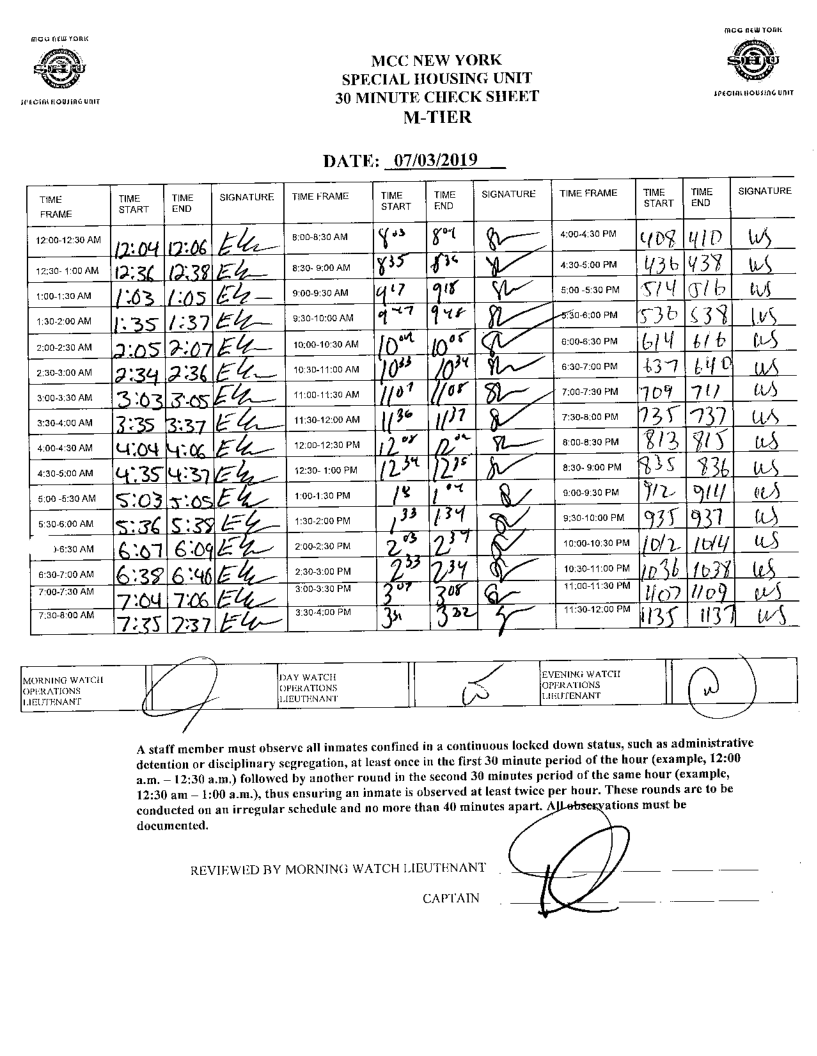 MCC NEW YORK
SHU
SPECIAL HOUSING UNIT
MCC NEW YORK
SHU
SPECIAL HOUSING UNIT
MCC NEW YORK
SPECIAL HOUSING UNIT
30 MINUTE CHECK SHEET
M-TIER
DATE: 07/03/2019
TIME FRAME TIME START TIME END SIGNATURE TIME FRAME TIME START TIME END SIGNATURE TIME FRAME TIME START TIME END SIGNATURE
12:00-12:30 AM 12:04 12:06 8:00-8:30 AM 8 03 8 04 4:00-4:30 PM 408 410 WS
12:30- 1:00 AM 12:36 12:38 8:30- 9:00 AM 8 35 8 36 4:30-5:00 PM 436 438 WS
1:00-1:30 AM 1:03 1:05 9:00-9:30 AM 9 17 9 18 5:00 -5:30 PM 514 516 WS
1:30-2:00 AM 1:35 1:37 9:30-10:00 AM 9 47 9 48 5:30-6:00 PM 536 538 WS
2:00-2:30 AM 2:05 2:07 10:00-10:30 AM 10 04 10 05 6:00-6:30 PM 614 616 WS
2:30-3:00 AM 2:34 2:36 10:30-11:00 AM 10 33 10 34 6:30-7:00 PM 637 640 WS
3:00-3:30 AM 3:03 3:05 11:00-11:30 AM 11 07 11 08 7:00-7:30 PM 709 711 WS
3:30-4:00 AM 3:35 3:37 11:30-12:00 AM 11 36 11 37 7:30-8:00 PM 735 737 WS
4:00-4:30 AM 4:04 4:06 12:00-12:30 PM 12 08 8:00-8:30 PM 813 815 WS
4:30-5:00 AM 4:35 4:37 12:30- 1:00 PM 12 34 12 35 8:30- 9:00 PM 835 836 WS
5:00 -5:30 AM 5:03 5:05 1:00-1:30 PM 9:00-9:30 PM 912 914 WS
5:30-6:00 AM 5:36 5:38 1:30-2:00 PM 1 33 1 34 9:30-10:00 PM 935 937 WS
)-6:30 AM 6:07 6:09 2:00-2:30 PM 2 03 10:00-10:30 PM 1012 1014 WS
6:30-7:00 AM 6:38 6:40 2:30-3:00 PM 2 33 2 34 10:30-11:00 PM 1036 1038 WS
7:00-7:30 AM 7:04 7:06 3:00-3:30 PM 3 07 3 08 11:00-11:30 PM 1107 1109 WS
7:30-8:00 AM 7:35 7:37 3:30-4:00 PM 3 31 3 32 11:30-12:00 PM 1135 1137 WS
MORNING WATCH OPERATIONS LIEUTENANT DAY WATCH OPERATIONS LIEUTENANT EVENING WATCH OPERATIONS LIEUTENANT
A staff member must observe all inmates confined in a continuous locked down status, such as administrative
detention or disciplinary segregation, at least once in the first 30 minute period of the hour (example, 12:00
a.m. – 12:30 a.m.) followed by another round in the second 30 minutes period of the same hour (example,
12:30 am – 1:00 a.m.), thus ensuring an inmate is observed at least twice per hour. These rounds are to be
conducted on an irregular schedule and no more than 40 minutes apart. All observations must be
documented.
REVIEWED BY MORNING WATCH LIEUTENANT
CAPTAIN